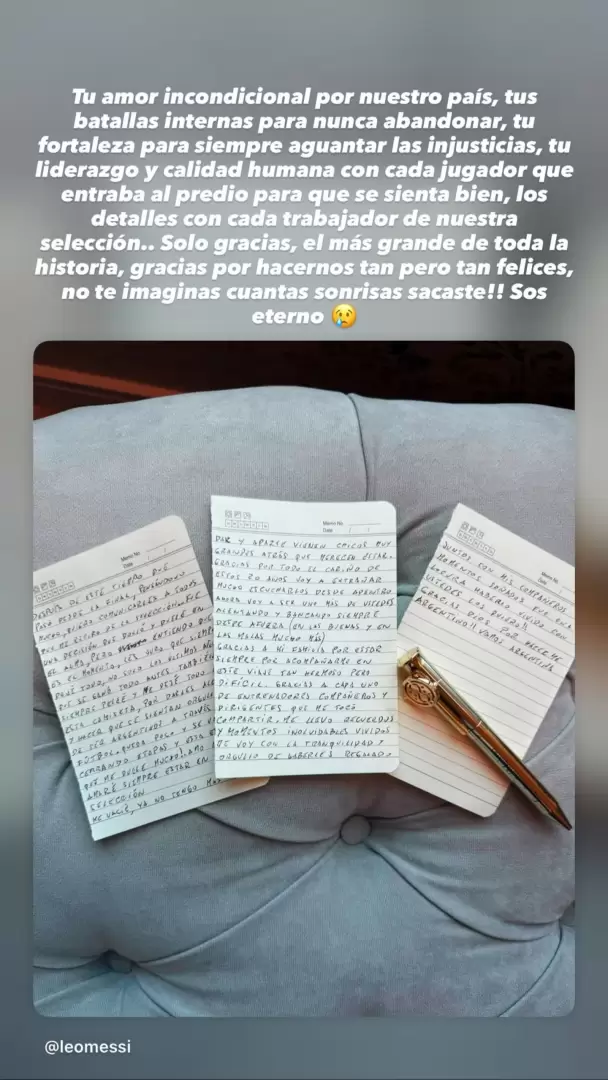 Tu amor incondicional por nuestro país, tus
batallas internas para nunca abandonar, tu
fortaleza para siempre aguantar las injusticias, tu
liderazgo y calidad humana con cada jugador que
entraba al predio para que se sienta bien, los
detalles con cada trabajador de nuestra
selección.. Solo gracias, el más grande de toda la
historia, gracias por hacernos tan pero tan felices,
no te imaginas cuantas sonrisas sacaste!! Sos
eterno 😢
Memo No.
Date / /
DESPUES DE ESTE TIEMPO QUE
PASO DESDE LA FINAL, PENSANDOLO
MUCHO, QUIERO COMUNICARLES A TODOS
QUE ME RETIRO DE LA SELECCION. FUE
UNA DECISION QUE DOLIO Y DUELE EN
EL ALMA, PERO ENTIENDO QUE
ES EL MOMENTO. LES JURO QUE SIEMPRE
DEJÉ TODO, NO SOLO LOS ULTIMOS AÑOS
QUE SE GANÓ TODO ANTES TAMBIEN
SIEMPRE PELEÉ Y ME DEJÉ TODO
ESTA CAMISETA, POR DARLES ALE
Y HACER QUE SE SIENTAN ORGULL
DE SER ARGENTINOS A TRAVÉS
FUTBOL. QUEDA POCO Y SE VA
CERRANDO ETAPAS Y ESTA
QUE ME DUELE MUCHO. AMO
AMARÉ SIEMPRE ESTAR EN
SELECCIÓN
ME VACIÉ, YA NO TENGO MÁS
Memo No.
Date / /
DAR Y APARTE VIENEN CHICOS MUY
GRANDES ATRÁS QUE MERECEN ESTAR.
GRACIAS POR TODO EL CARIÑO DE
ESTOS 20 AÑOS VOY A EXTRAÑAR
MUCHO ESCUCHARLOS DESDE ADENTRO
AHORA VOY A SER UNO MAS DE USTEDES
ALENTANDO Y BANCANDO SIEMPRE
DESDE AFUERA (EN LAS BUENAS Y EN
LAS MALAS MUCHO MÁS)
GRACIAS A MI FAMILIA POR ESTAR
SIEMPRE POR ACOMPAÑARME EN
ESTE VIAJE TAN HERMOSO PERO
DIFÍCIL. GRACIAS A CADA UNO
DE ENTRENADORES COMPAÑEROS Y
DIRIGENTES QUE ME TOCÓ
COMPARTIR. ME LLEVO RECUERDOS
Y MOMENTOS INOLVIDABLES VIVIDOS
ME VOY CON LA TRANQUILIDAD Y
ORGULLO DE HABERLES REGALADO
Memo No.
Date / /
JUNTOS CON MIS COMPAÑEROS
MOMENTOS SOÑADOS FUE UNA
HABERLO VIVIDO CON
USTEDES LOS QUIERO!!
GRACIAS DIOS POR HACERME
ARGENTINO!! VAMOS ARGENTINA
@leomessi